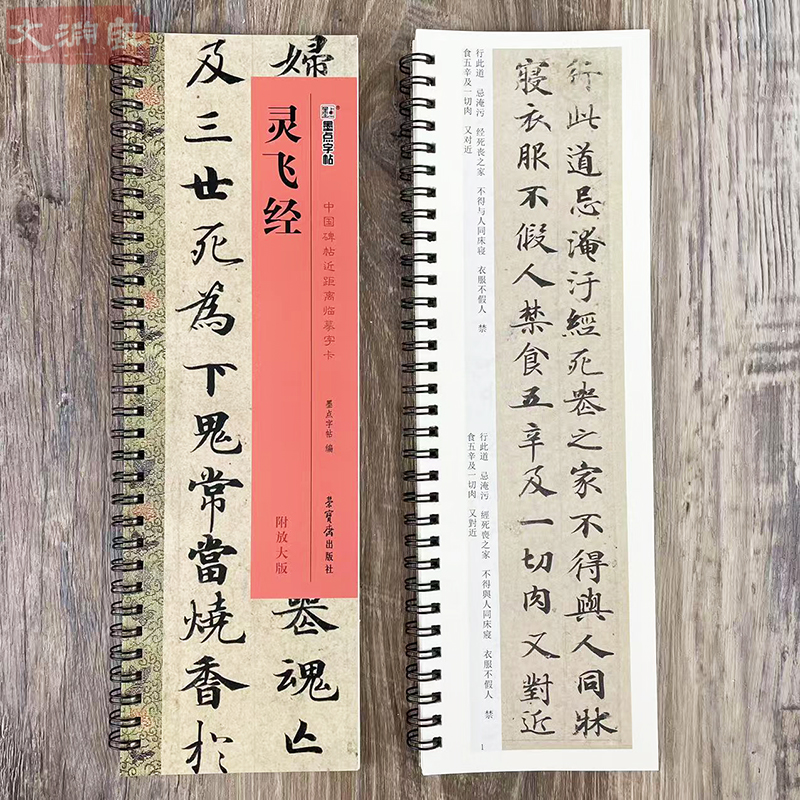 文润阁
婦
及三世死為下鬼常當燒香於
墨点字帖
灵飞经
中国碑帖近距离临摹字卡
墨点字帖 编
荣宝斋出版社
附放大版
魂亡
行此道忌淹汙經死喪之家不得與人同牀
寢衣服不假人禁食五辛及一切肉又對近
行此道 忌淹污 经死丧之家 不得与人同床寝 衣服不假人 禁
食五辛及一切肉 又对近
行此道 忌淹污 經死喪之家 不得與人同床寢 衣服不假人 禁
食五辛及一切肉 又對近
1